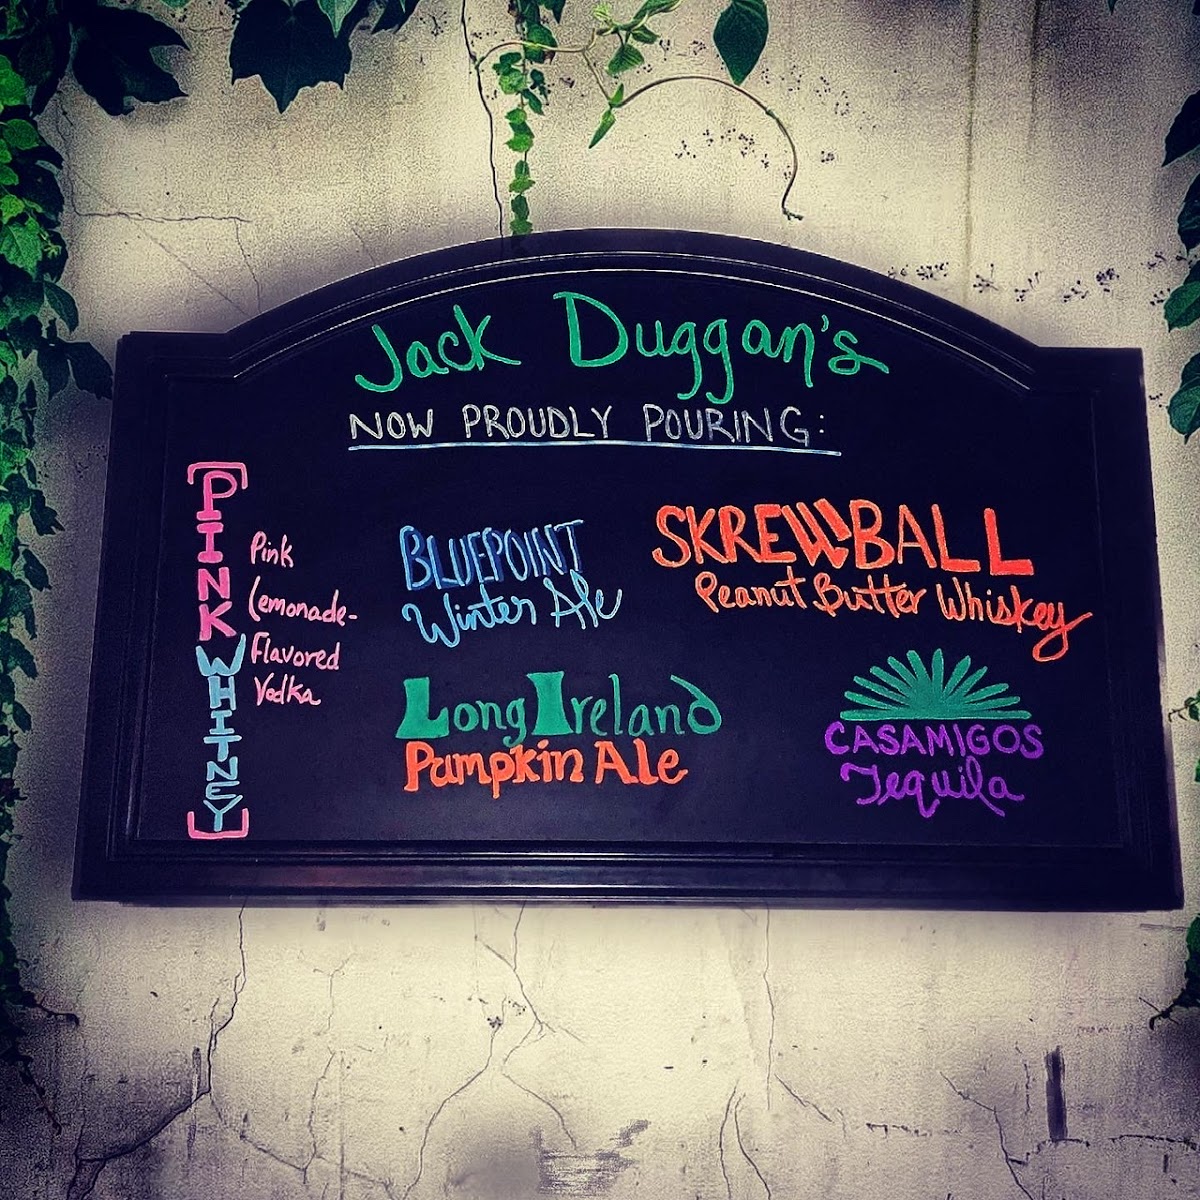 Jack Duggan's
NOW PROUDLY POURING:
[PINK WHITNEY]
Pink
Lemonade-
Flavored
Vodka
BLUEPOINT
Winter Ale
Long Ireland
Pumpkin Ale
SKREWBALL
Peanut Butter Whiskey
CASAMIGOS
Tequila